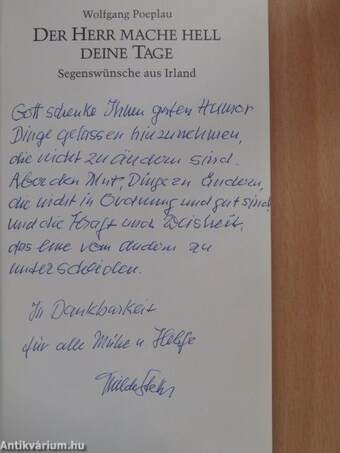 Wolfgang Poeplau
DER HERR MACHE HELL
DEINE TAGE
Segenswünsche aus Irland
Gott schenke Ihnen guten Humor
Dinge gelassen hinzunehmen,
die nicht zu ändern sind.
Aber den Mut, Dinge zu ändern,
die nicht in Ordnung und gut sind
und die Kraft und Weisheit,
das eine vom andern zu
unterscheiden.
In Dankbarkeit
für alle Mühe u Hilfe
Antikvárium.hu